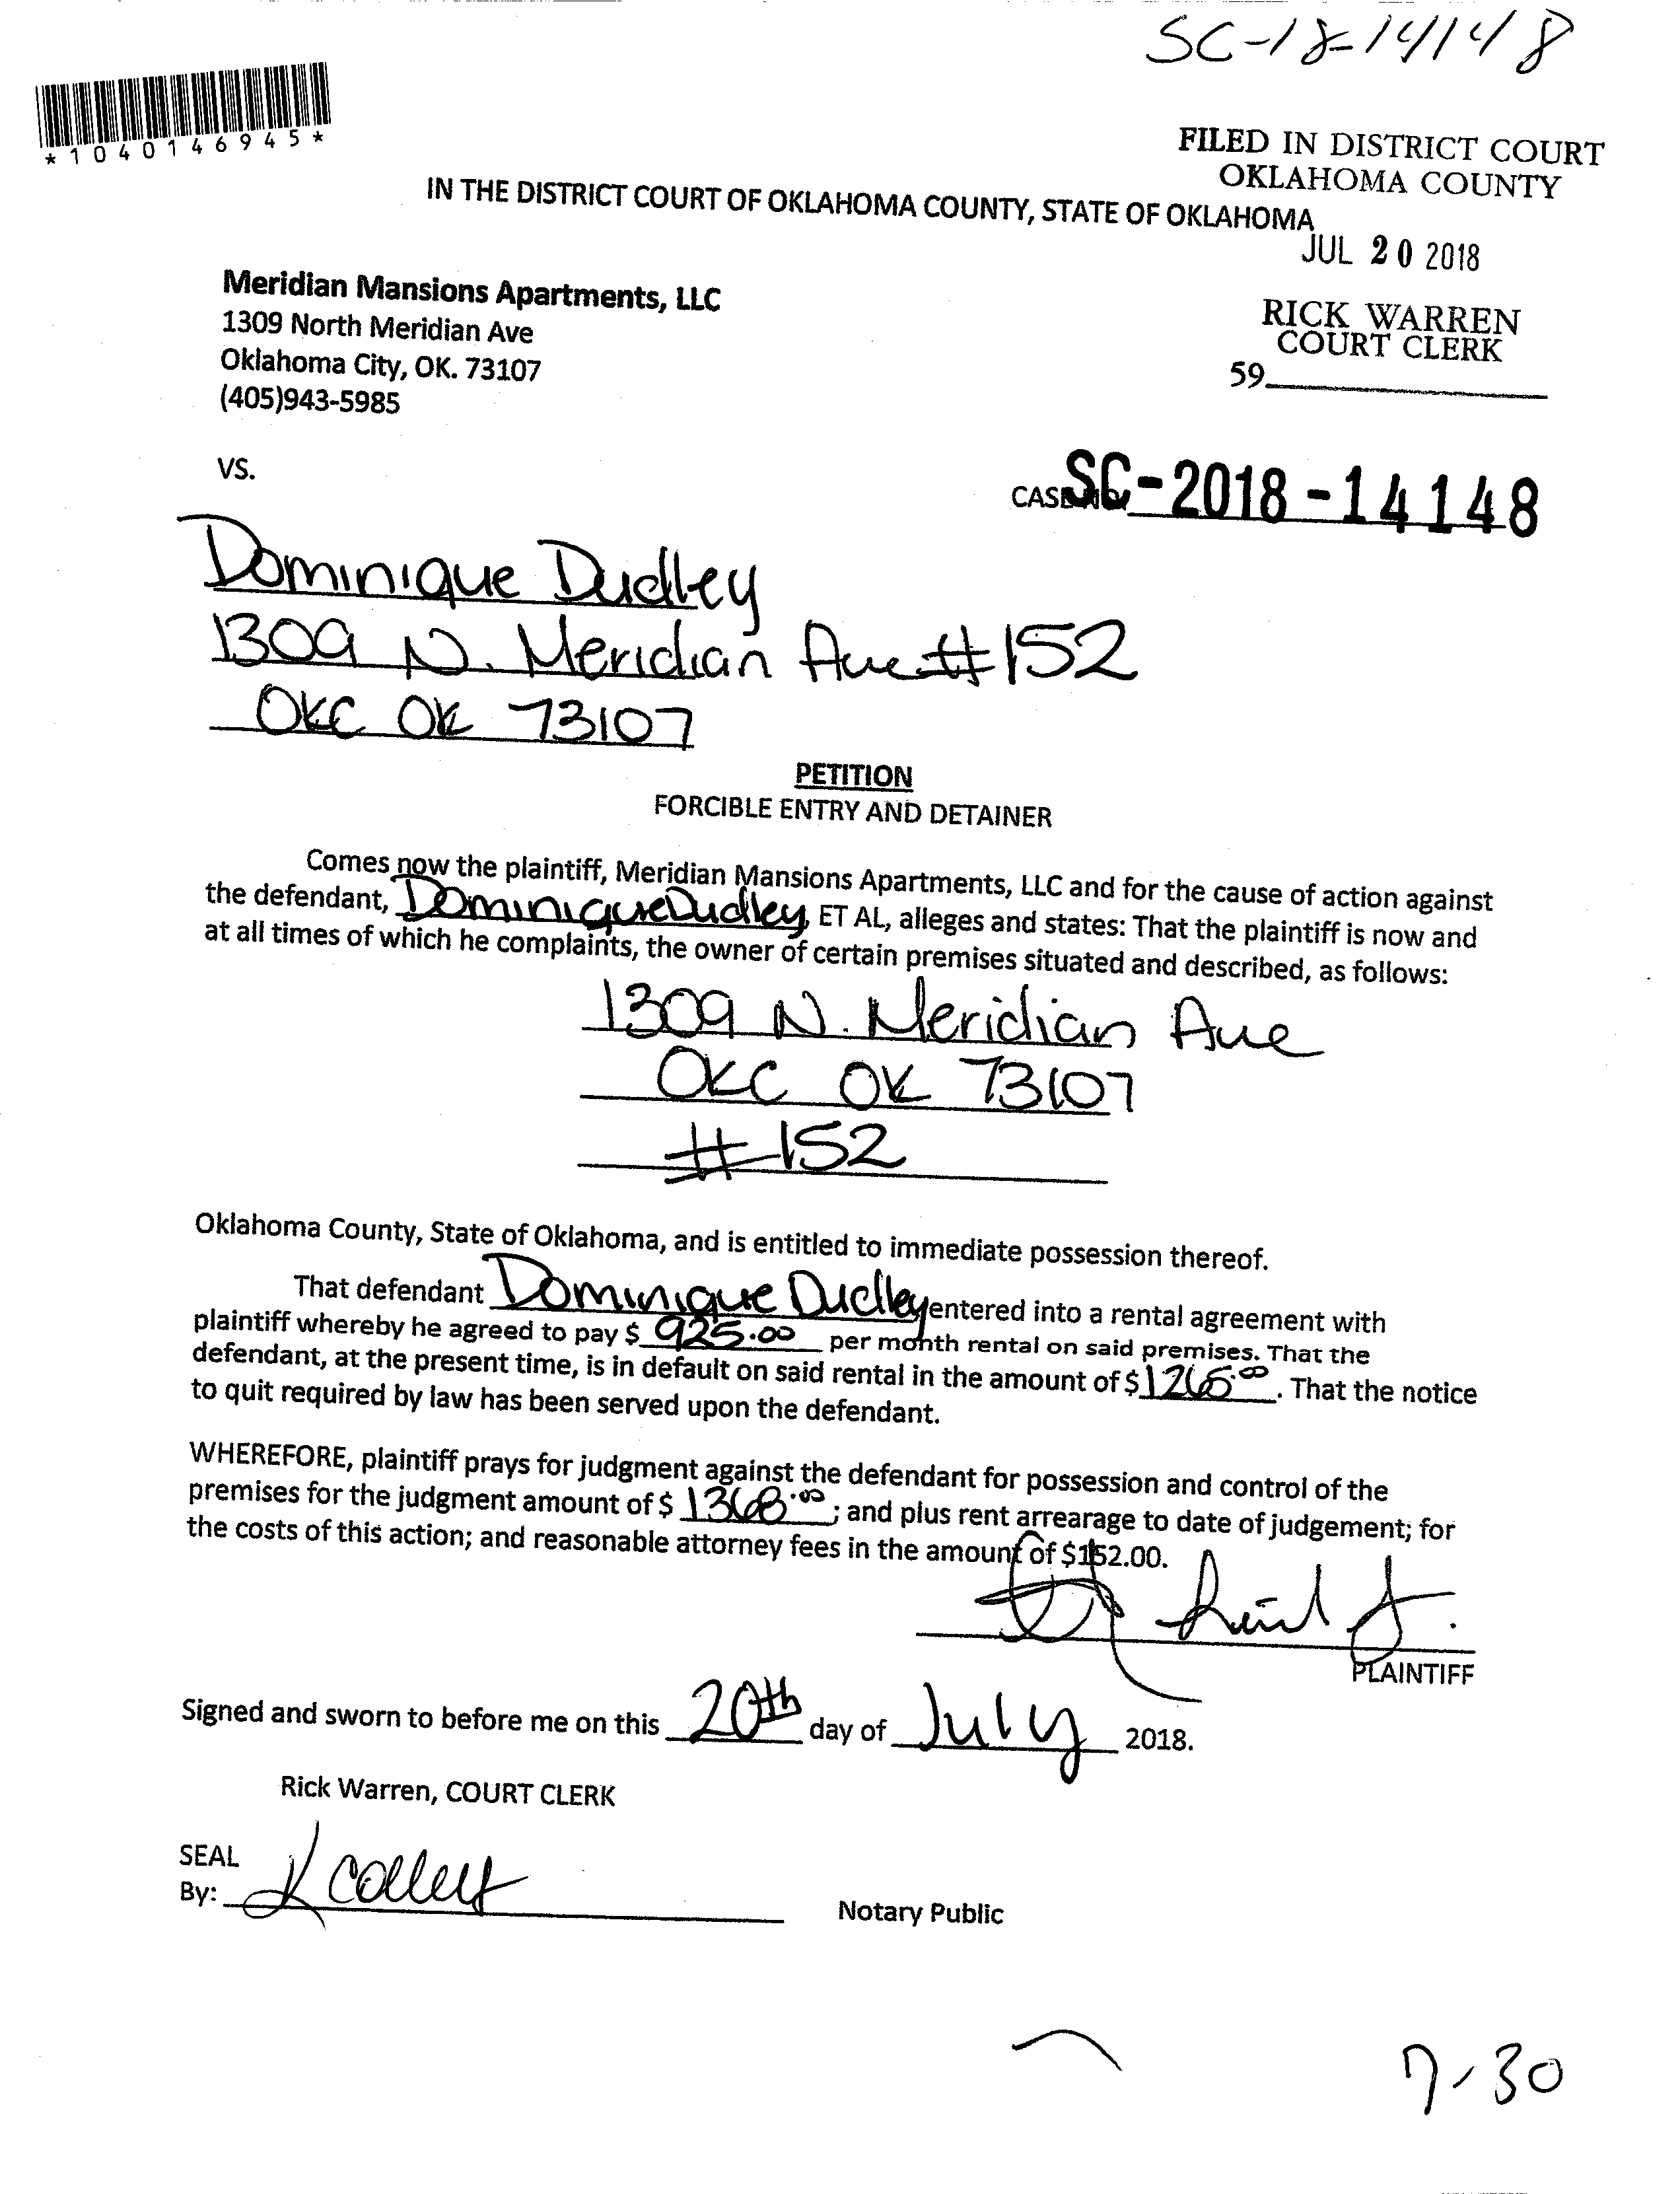 SC-18-14148
*1040146945*
FILED IN DISTRICT COURT
OKLAHOMA COUNTY
IN THE DISTRICT COURT OF OKLAHOMA COUNTY, STATE OF OKLAHOMA
JUL 20 2018
Meridian Mansions Apartments, LLC
1309 North Meridian Ave
Oklahoma City, OK. 73107
(405)943-5985
RICK WARREN
COURT CLERK
59
VS.
CASE NO. SC-2018-14148
Dominique Dudley
1309 N. Meridian Ave #152
OKC OK 73107
PETITION
FORCIBLE ENTRY AND DETAINER
Comes now the plaintiff, Meridian Mansions Apartments, LLC and for the cause of action against
the defendant, Dominique Dudley, ET AL, alleges and states: That the plaintiff is now and
at all times of which he complaints, the owner of certain premises situated and described, as follows:
1309 N. Meridian Ave
OKC OK 73107
#152
Oklahoma County, State of Oklahoma, and is entitled to immediate possession thereof.
That defendant Dominique Dudley entered into a rental agreement with
plaintiff whereby he agreed to pay $ 925.00 per month rental on said premises. That the
defendant, at the present time, is in default on said rental in the amount of $1265.00. That the notice
to quit required by law has been served upon the defendant.
WHEREFORE, plaintiff prays for judgment against the defendant for possession and control of the
premises for the judgment amount of $ 1368.00; and plus rent arrearage to date of judgement; for
the costs of this action; and reasonable attorney fees in the amount of $152.00.
PLAINTIFF
Signed and sworn to before me on this 20th day of July 2018.
Rick Warren, COURT CLERK
SEAL
By: K Colley
Notary Public
7-30